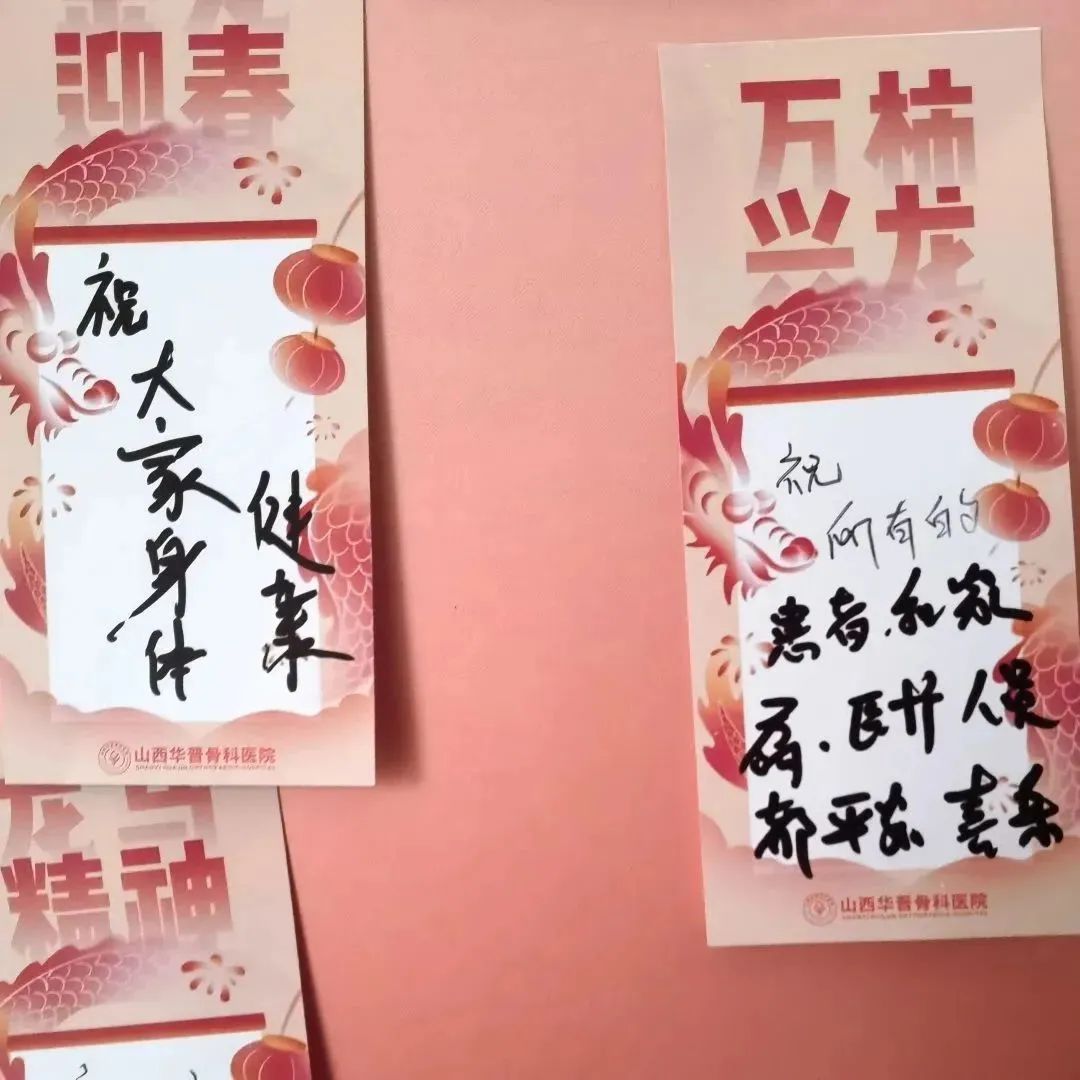 迎春
祝
大家身体
健康
山西华晋骨科医院
龙马
精神
万柿
兴龙
祝
所有的
患者.和家
属.医护人员
都平安喜乐
山西华晋骨科医院